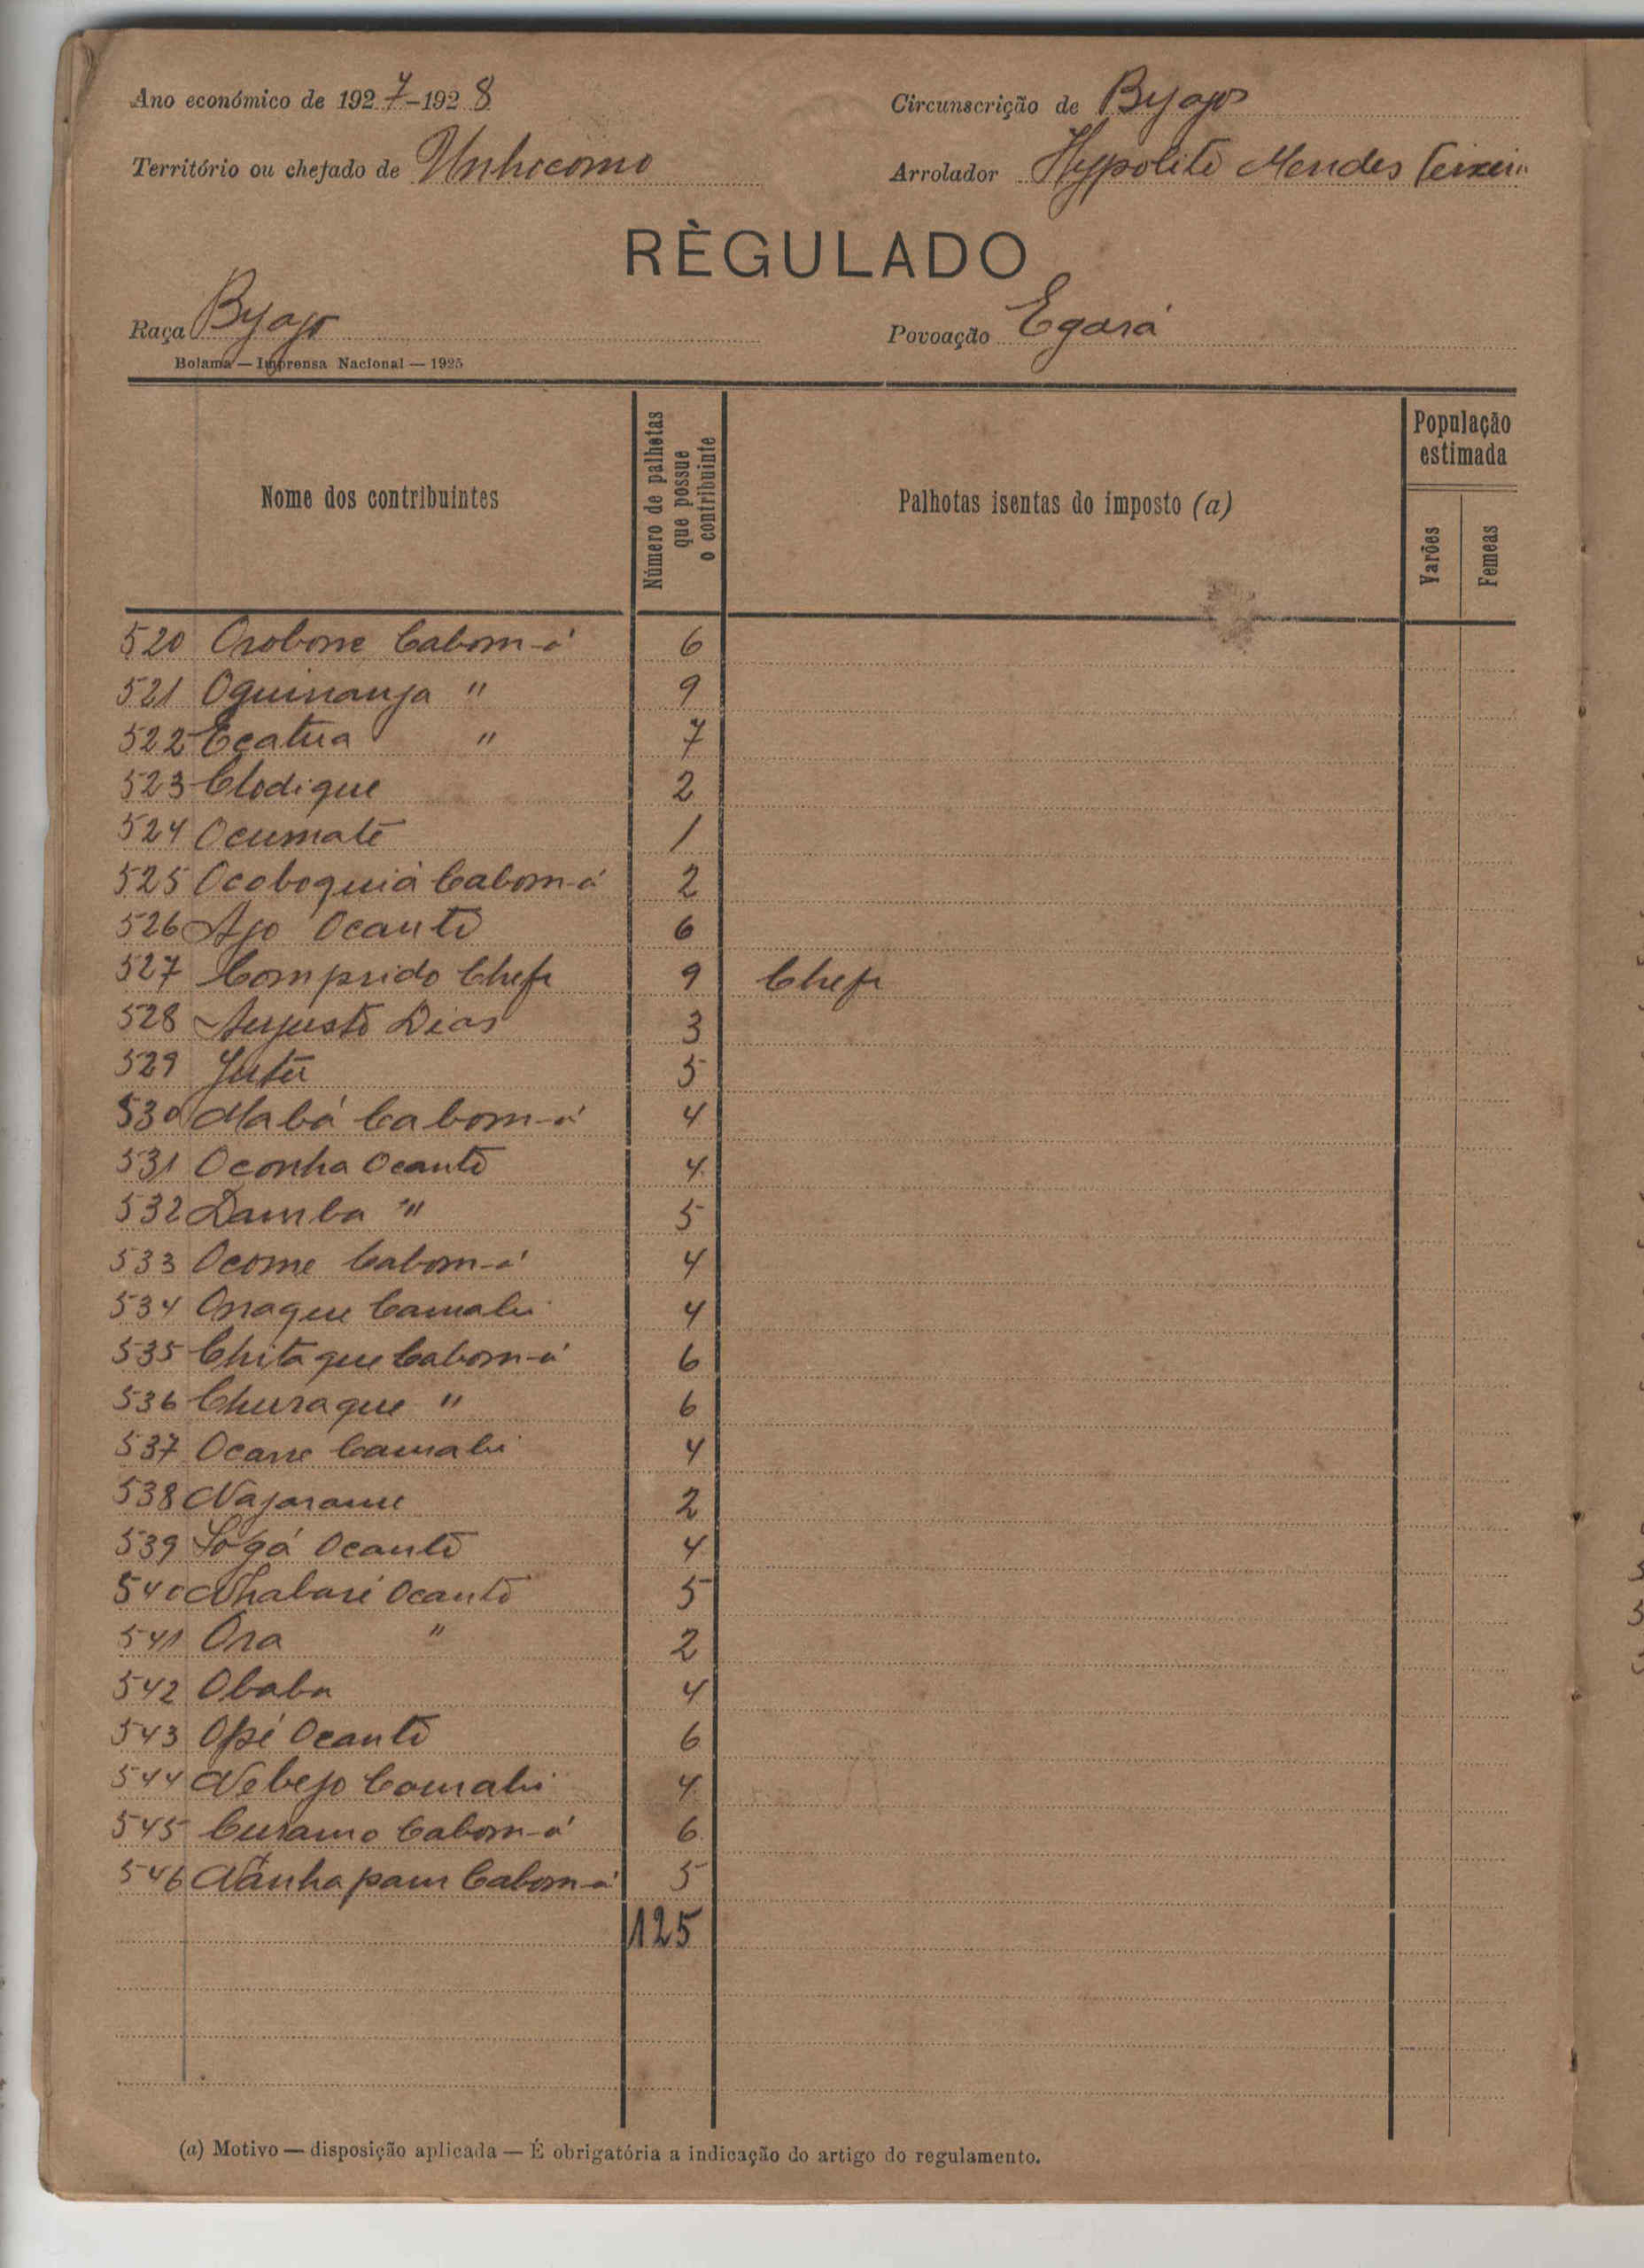 Ano económico de 1927-1928 Circunscrição de Byagos
Território ou chefado de Unhocomo Arrolador Hypolito Mendes Teixeira
RÈGULADO
Raça Byago Povoação Egará
Bolama — Imprensa Nacional — 1925
Nome dos contribuintes
Número de palhotas que possue o contribuinte
Palhotas isentas do imposto (a)
População estimada
Varões
Femeas
520 Orobone Cabom-á 6
521 Oguinanja " 9
522 Ecatua " 7
523 Clodique 2
524 Ocumate 1
525 Ocoboquiá Cabom-á 2
526 Ajo Ocanto 6
527 Comprido Chefe 9 Chefe
528 Augusto Dias 3
529 Jutu 5
530 Mabá Cabom-á 4
531 Oconha Ocanto 4
532 Damba " 5
533 Ocome Cabom-á 4
534 Onaque Camabi 4
535 Chitaque Cabom-á 6
536 Churaque " 6
537 Ocane Camabi 4
538 Najarame 2
539 Sogá Ocanto 4
540 Nhabaré Ocanto 5
541 Ora " 2
542 Obaba 4
543 Opé Ocanto 6
544 Nebejo Camabi 4
545 Curamo Cabom-á 6
546 Nanhapam Cabom-á 5
125
(a) Motivo — disposição aplicada — É obrigatória a indicação do artigo do regulamento.